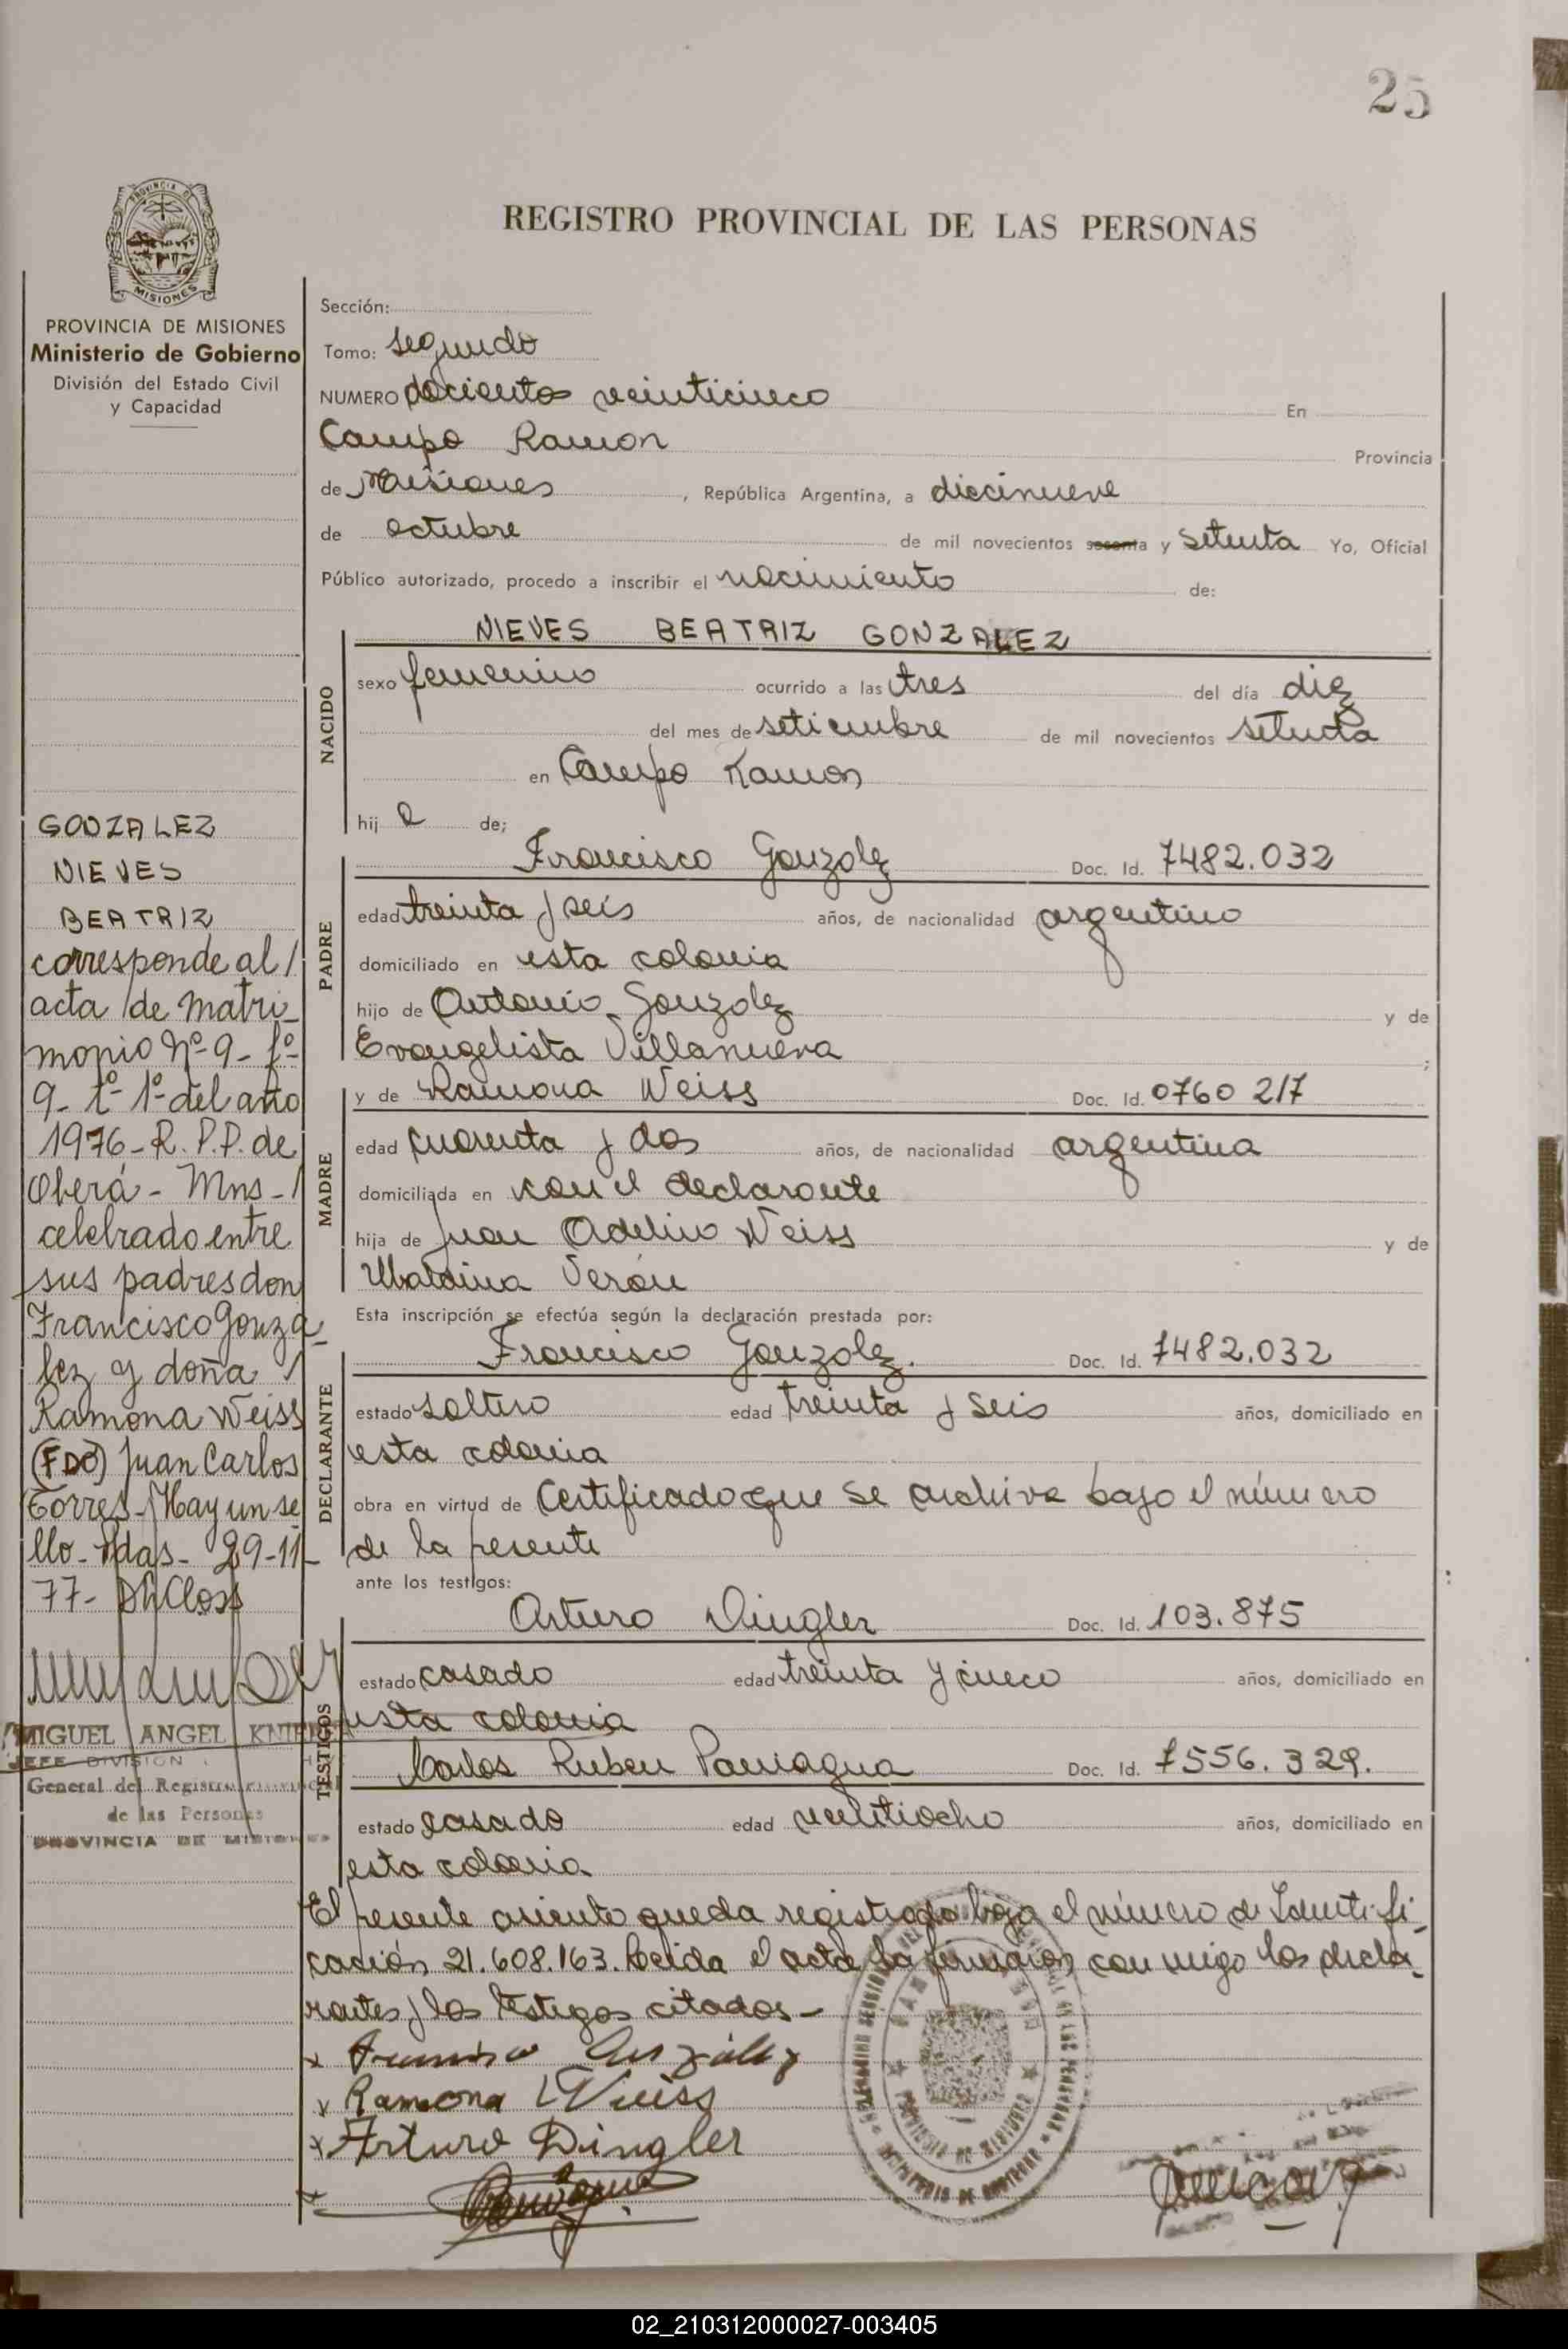 25
REGISTRO PROVINCIAL DE LAS PERSONAS
PROVINCIA DE
MISIONES
PROVINCIA DE MISIONES
Ministerio de Gobierno
División del Estado Civil
y Capacidad
GONZALEZ
NIEVES
BEATRIZ
corresponde al /
acta de matri_
monio Nº-9- fº-
9- tº- 1º- del año
1976- R. P.P. de
Oberá- Mns- /
celebrado entre
sus padres don
Francisco Gonzá_
lez y doña /
Ramona Weiss
(FDO) Juan Carlos
Torres- Hay un se
llo- Pdas- 29-11-
77-
MIGUEL ANGEL
JEFE DIVISION
General del Registro Provincial
de las Personas
PROVINCIA DE MISIONES
Sección:
Tomo: segundo
NUMERO docientos veinticinco En
Campo Ramon Provincia
de Misiones, República Argentina, a diecinueve
de octubre de mil novecientos sesenta y setenta Yo, Oficial
Público autorizado, procedo a inscribir el nacimiento de:
NACIDO
NIEVES BEATRIZ GONZALEZ
sexo femenino ocurrido a las tres del día diez
del mes de setiembre de mil novecientos setenta
en Campo Ramon
hija de;
PADRE
Francisco Gonzalez Doc. Id. 7482.032
edad treinta y seis años, de nacionalidad argentino
domiciliado en esta colonia
hijo de Antonio Gonzalez y de
Evangelista Villanueva ;
MADRE
y de Ramona Weiss Doc. Id. 0760 217
edad cuarenta y dos años, de nacionalidad argentina
domiciliada en con el declarante
hija de Juan Adelino Weiss y de
Ubaldina Verón
Esta inscripción se efectúa según la declaración prestada por:
DECLARANTE
Francisco Gonzalez. Doc. Id. 7482.032
estado soltero edad treinta y seis años, domiciliado en
esta colonia
obra en virtud de Certificado que se archiva bajo el número
de la presente
ante los testigos:
TESTIGOS
Arturo Dingler Doc. Id. 103.875
estado casado edad treinta y cinco años, domiciliado en
esta colonia
Carlos Ruben Paniagua Doc. Id. 7556.329.
estado casado edad veintiocho años, domiciliado en
esta colonia
El presente asiento queda registrado bajo el número de Identifi_
cación 21.608.163. Leida el acta la firmaron conmigo los decla_
rantes y los testigos citados-
x Francisco González
x Ramona Weiss
x Arturo Dingler
x
02_210312000027-003405